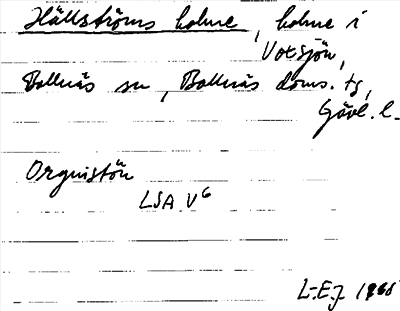 Hällströms holme, holme i
Votsjön,
Bollnäs sn, Bollnäs doms. tg,
Gävl. l.
Orquistön
LSA V6
L-E.J. 1968